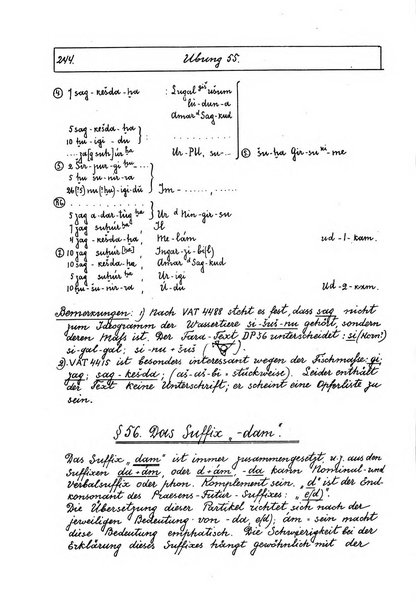 244. Übung 55.
④ 7 sag-kešda-ḫa : Lugal giš ušum
lú-dun-a
Amar ᵈSag-kud
5 sag-kešda-ḫa
10 ḫu-igi-du
Ur-PU, su-... šu-ḫa Gir-su ki-me
③ 2 Sir-pur-gi ḫa
5 ḫu šu-nir-ra
Im-......,
5 zag a-dar-tug ḫa, Ur ᵈNin-gir-su
7 zag suḫúr ḫa, Il
4 zag kešda-ḫa, Me-lám ud-1-kam.
zag suḫúr Ingar-zi-
10 sag-kešda-ḫa, Amar ᵈSag-kud
5 zag suḫúr ḫa, Ur-igi
10 ḫu-šu-nir-ra, Ú-du Ud-2-kam.
Bemerkungen: 1) Nach VAT 4488 steht es fest, dass sag nicht
zum Ideogramm der Wassertiere si-šuš-nu gehört, sondern
deren Maß ist. Der Fara-Text DP 36 unterscheidet: si (Horn?)
si-gal-gal; si-nu + šuš
2. VAT 4475 ist besonders interessant wegen der Fischmaße: gi;
zag; sag-kešda; (aš-aš-bi = stückweise). Leider enthält
der Text keine Unterschrift; er scheint eine Opferliste zu
sein.
§ 56. Das Suffix „-dam".
Das Suffix „dam" ist immer zusammengesetzt, u.z. aus den
Suffixen da + ám, oder d + ám. -da kann Nominal- und
Verbalsuffix oder phon. Komplement sein. „d" ist der End-
konsonant des Praesens-Futur-Suffixes: „e(d)".
Die Übersetzung dieser Partikel richtet sich nach der
jeweiligen Bedeutung von -da, e(d); ám = sein macht
diese Bedeutung emphatisch. Die Schwierigkeit bei der
Erklärung dieses Suffixes hängt gewöhnlich mit der